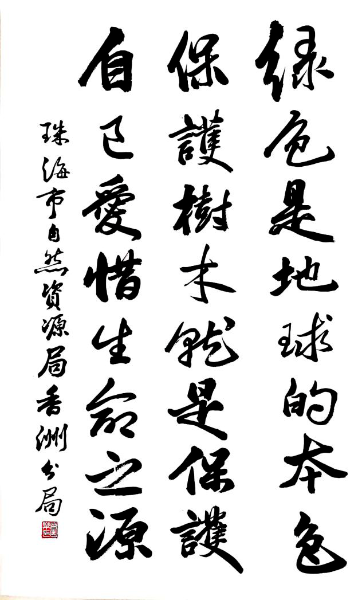 绿色是地球的本色
保護樹木就是保護
自己愛惜生命之源
珠海市自然資源局香洲分局